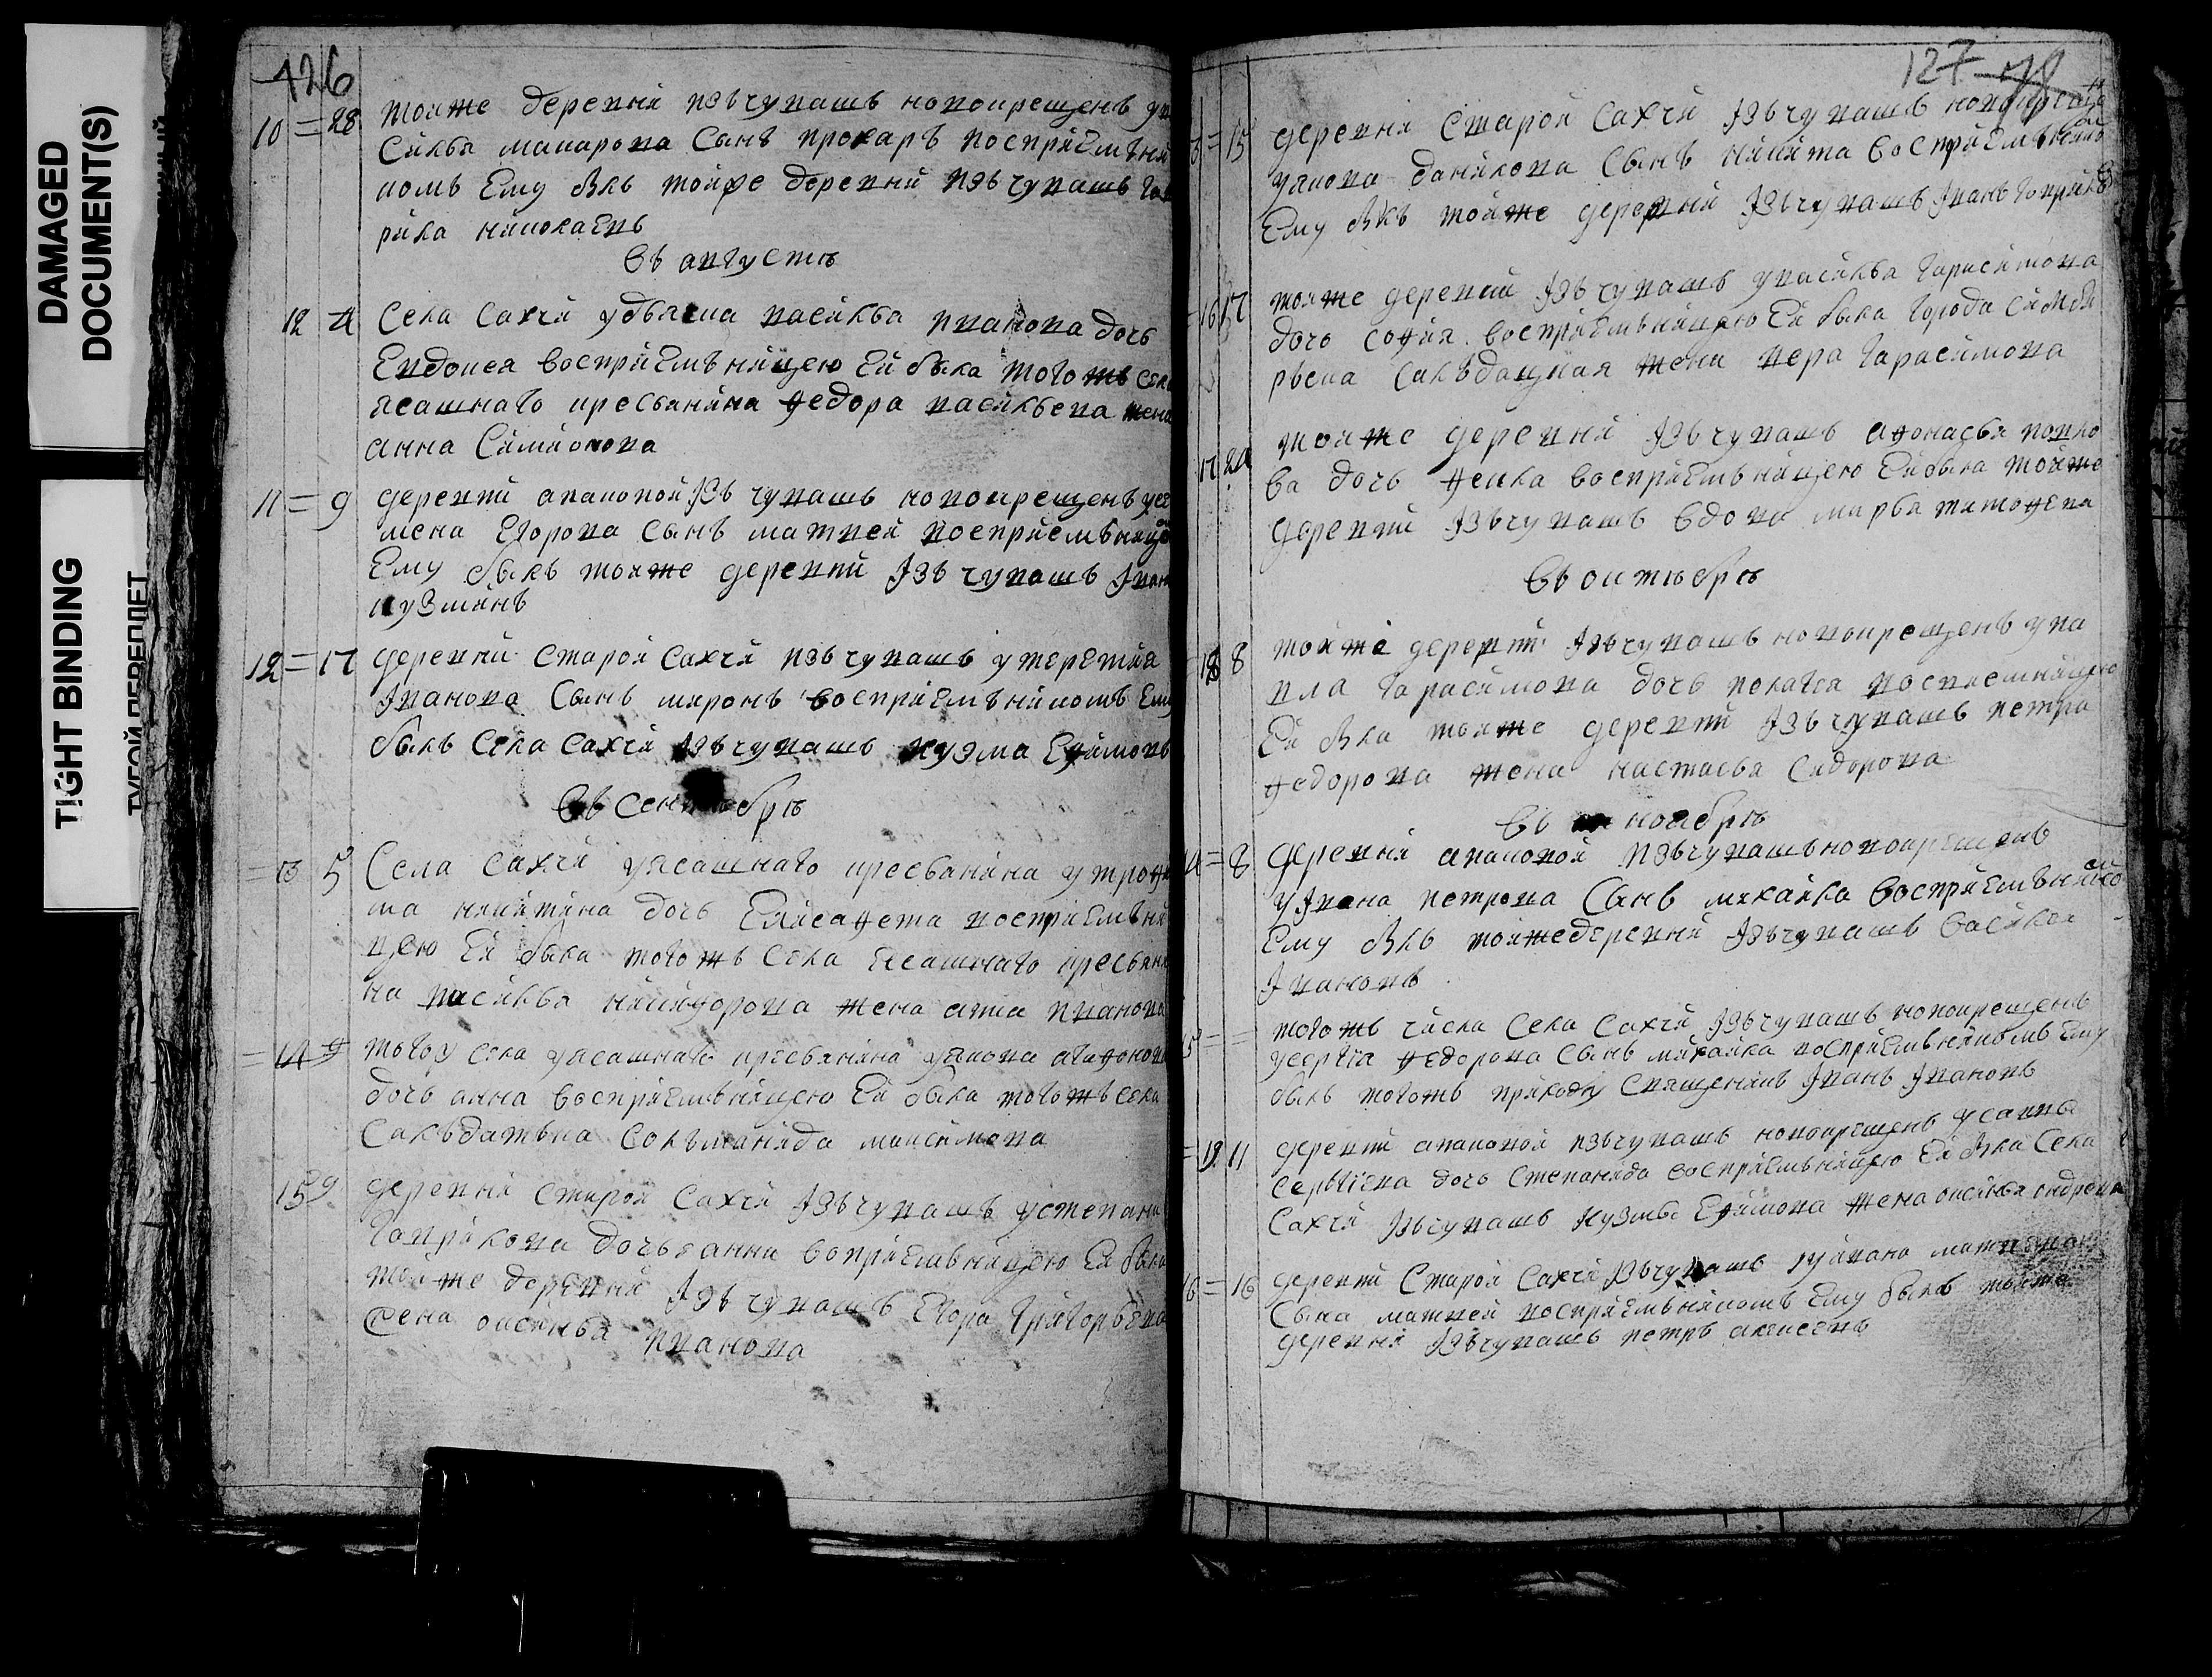 DAMAGED
DOCUMENT(S)
TIGHT BINDING
ТУГОЙ ПЕРЕПЛЕТ
126
10 = 28 тояже деревни изъчувашъ новокрещенъ у ва
силья макарова сынъ прохаръ восприемъни
комъ ему былъ тойже деревни изъчувашъ гав
рила николаевъ
въ августѣ
12 4 села сахчи удьячка василья иванова дочь
евдокея восприемъницею ей была тогожъ села
ясашнаго кресьянина федора васильева жена
анна симионова
11 = 9 деревни аналокой изъ чувашъ новокрещенъ усе
мена егорова сынъ матвей восприемъникомъ
ему былъ тояже деревни изъ чувашъ иванъ
кузминъ
12 = 17 деревни старой сахчи изъчувашъ утерентия
иванова сынъ миронъ восприемъникомъ ему
былъ села сахчи изъчувашъ кузма ефимовъ
въ сентебрѣ
= 13 5 села сахчи уясашнаго кресьянина утрофи
ма никитина дочь елисафета восприемъни
цею ей была тогожъ села ясашнаго кресьяни
на василья никифорова жена анна иванова
= 14 тогож села уясашнаго кресьянина уякова агафонова
дочь анна восприемъницею ей была тогожъ села
салъдатъка солъманида максимова
15 9 деревни старой сахчи изъчувашъ устепана
гаврилова дочь анна восприемъницею ей была
тойже деревни изъ чувашъ егора григорьева
жена оксинья иванова
127
= 15 деревни старой сахчи изъчувашъ новокреще
уякова данилова сынъ никита восприемъникомъ
ему былъ тойже деревни изъчувашъ иванъ гавриловъ
16 17 тояже деревни изъ чувашъ увасилья гарасимова
дочь софия восприемъницею ей была города симби
рьска салъдацкая жена вера гарасимова
17 24 тояже деревни изъ чувашъ афонасья павло
ва дочь фекла восприемъницею ей была тойже
деревни изъчувашъ вдова марья тимофева
въ октебрѣ
18 8 тойже деревни изъчувашъ новокрещенъ упа
вла гарасимова дочь пелагея воспиемницею
ей была тояже деревни изъчувашъ петра
федорова жена настасья сидорова
въ ноебрѣ
14 = 8 деревни аналокой изъчувашъновокрещенъ
уивана петрова сынъ михайла восприемъникомъ
ему былъ тояжедеревни изъчувашъ василей
ивановъ
15 = тогожъ числа села сахчи изъчувашъ новокрещенъ
усергея федорова сынъ михайла восприемъникомъ ему
былъ тогожъ приходу священикъ иванъ ивановъ
= 19 11 деревни аналокой изъчувашъ новокрещенъ усаввы
сергеева дочь степанида восприемъницею ей была села
сахчи изъчувашъ кузмы ефимова жена оксинья ондреева
16 = 16 деревни старой сахчи изъчувашъ уивана матвеева
сына матвей восприемъникомъ ему былъ тояже
деревни изъчувашъ петръ алексеевъ